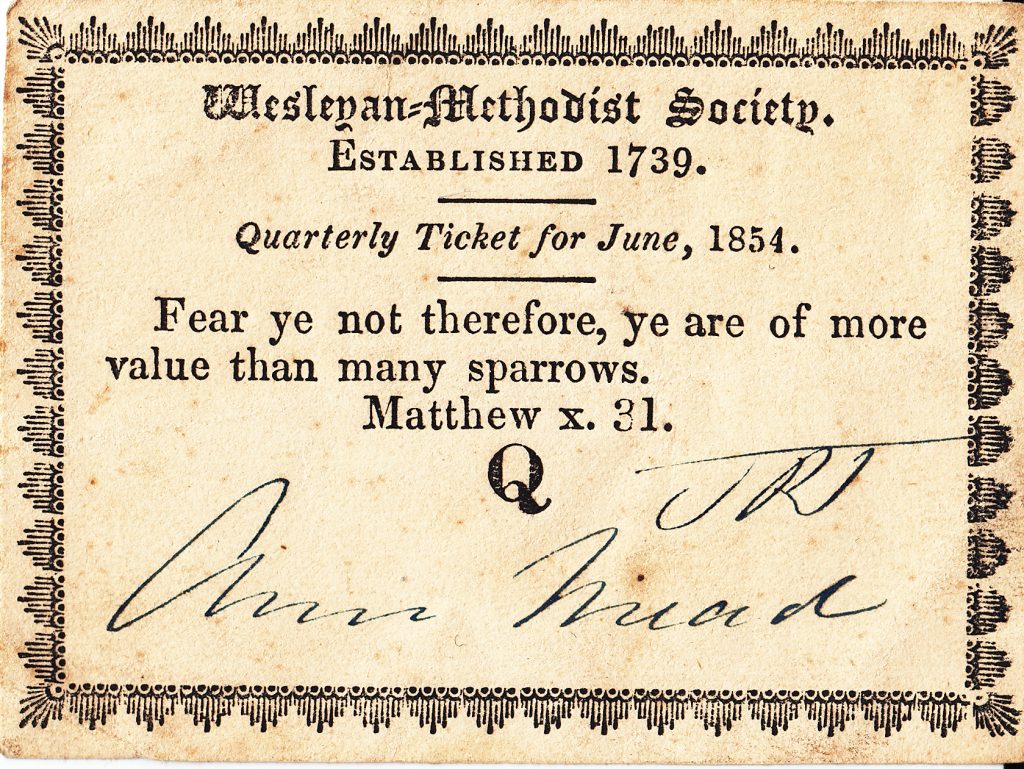 Wesleyan-Methodist Society.
ESTABLISHED 1739.
Quarterly Ticket for June, 1854.
Fear ye not therefore, ye are of more
value than many sparrows.
Matthew x. 31.
Q
JRT
Ann Mead